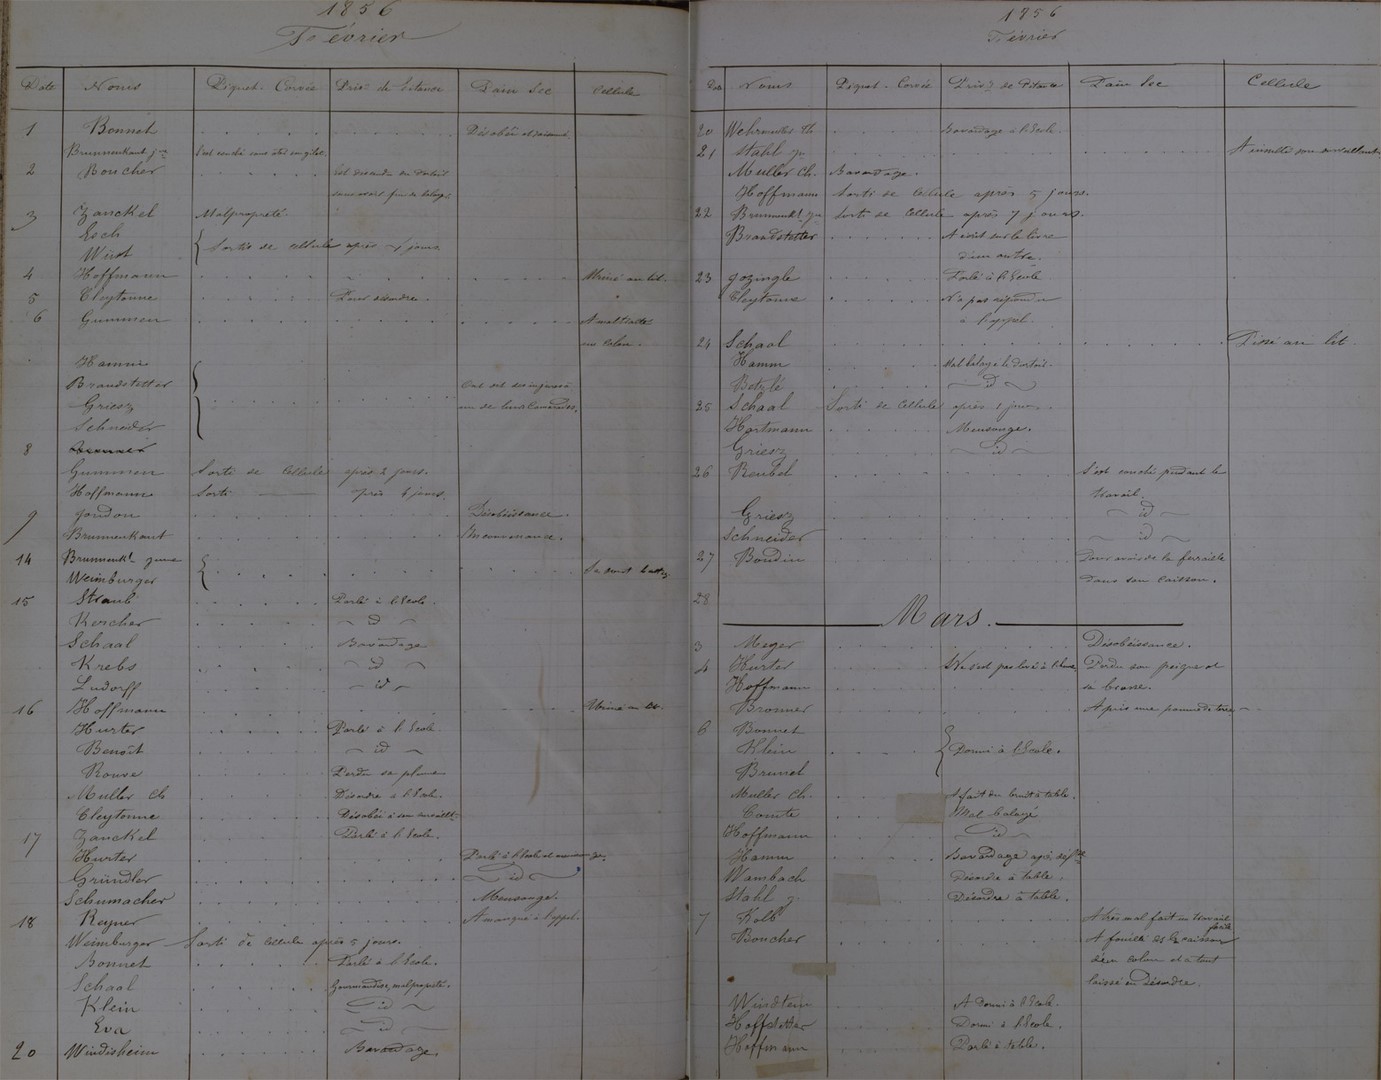 1856
Février
Date Noms Piquet. Corvée Privon de Pitance Pain Sec Cellule
1 Bonnet Désobéi et
Brunnenkant jne S'est couché sans ôter son gilet.
2 Boucher Est descendu du dortoir
sans avoir fini de balayer.
3 Zanckel Malpropreté.
Esch
Wust Sortis de cellule après jours.
4 Hoffmann Uriné au lit.
5 Cleytonne Pour désordre.
6 Gummen A maltraité
un colon.
Hamm
Brandstetter Ont
Griesz un de leurs Camarades.
Schneider
8
Gummen Sorti de Cellule après 2 jours.
Hoffmann Sorti après 4 jours.
9 Joudon Désobéissance.
Brunnenkant Inconvenance.
14 Brunnenkt jeune
Weimburger Se sont battus
15 Straub Parlé à l'Ecole.
Kercher id
Schaal Bavardage
Krebs id
Ludorff id
16 Hoffmann Uriné au lit.
Hurter Parlé à l'Ecole.
Benoit id
Rouve Perdu sa plume
Muller Ch Désordre à l'Ecole.
Cleytonne Désobéi à son surveillt.
17 Zanckel Parlé à l'Ecole.
Hurter Parlé à l'Ecole et mensonge.
Gründler id
Schumacher Mensonge.
18 Reyner A manqué à l'appel.
Weimburger Sorti de Cellule après 5 jours.
Bonnet Parlé à l'Ecole.
Schaal Gourmandise, malpropreté.
Klein id
Eva id
20 Windisheim Bavardage.
1856
Février
Date Noms Piquet. Corvée Privon de Pitance Pain Sec Cellule
20 Wehrmuller Th Bavardage à l'Ecole.
21 Stahl jn A insulté son surveillant.
Muller Ch. Bavardage.
Hoffmann Sorti de Cellule après 5 jours.
22 Brunnenkt jn Sorti de Cellule après 7 jours.
Brandstetter A écrit sur le livre
d'un autre.
23 Gozingle Parlé à l'Ecole
Cleytonne N'a pas répondu
à l'appel.
24 Schaal Pissé au lit.
Hamm Mal balayé le dortoir.
Betzlé id
25 Schaal Sorti de Cellule après 1 jour.
Hartmann Mensonge.
Griesz id
26 Reubel S'est couché pendant le
travail.
Griesz id
Schneider id
27 Boudin Pour avoir de la ferraille
dans son caisson.
28
Mars.
3 Meger Désobéissance.
4 Hurter Ne s'est pas levé à l'heure Perdu son peigne et
Hoffmann sa brosse.
Bronner A pris une pomme de terre
6 Bonnet
Klein Dormi à l'Ecole.
Brunel
Muller Ch. A fait du bruit à table.
Comte Mal balayé
Hoffmann id
Hamm Bavardage
Wambach Désordre à table.
Stahl j Désordre à table.
7 Kolb A très mal fait un travail
facile
Boucher A fouillé ds le caisson
d'un colon et a tout
laissé en Désordre.
Windten A Dormi à l'Ecole.
Hoffstetter Dormi à l'Ecole.
Hoffmann Parlé à table.